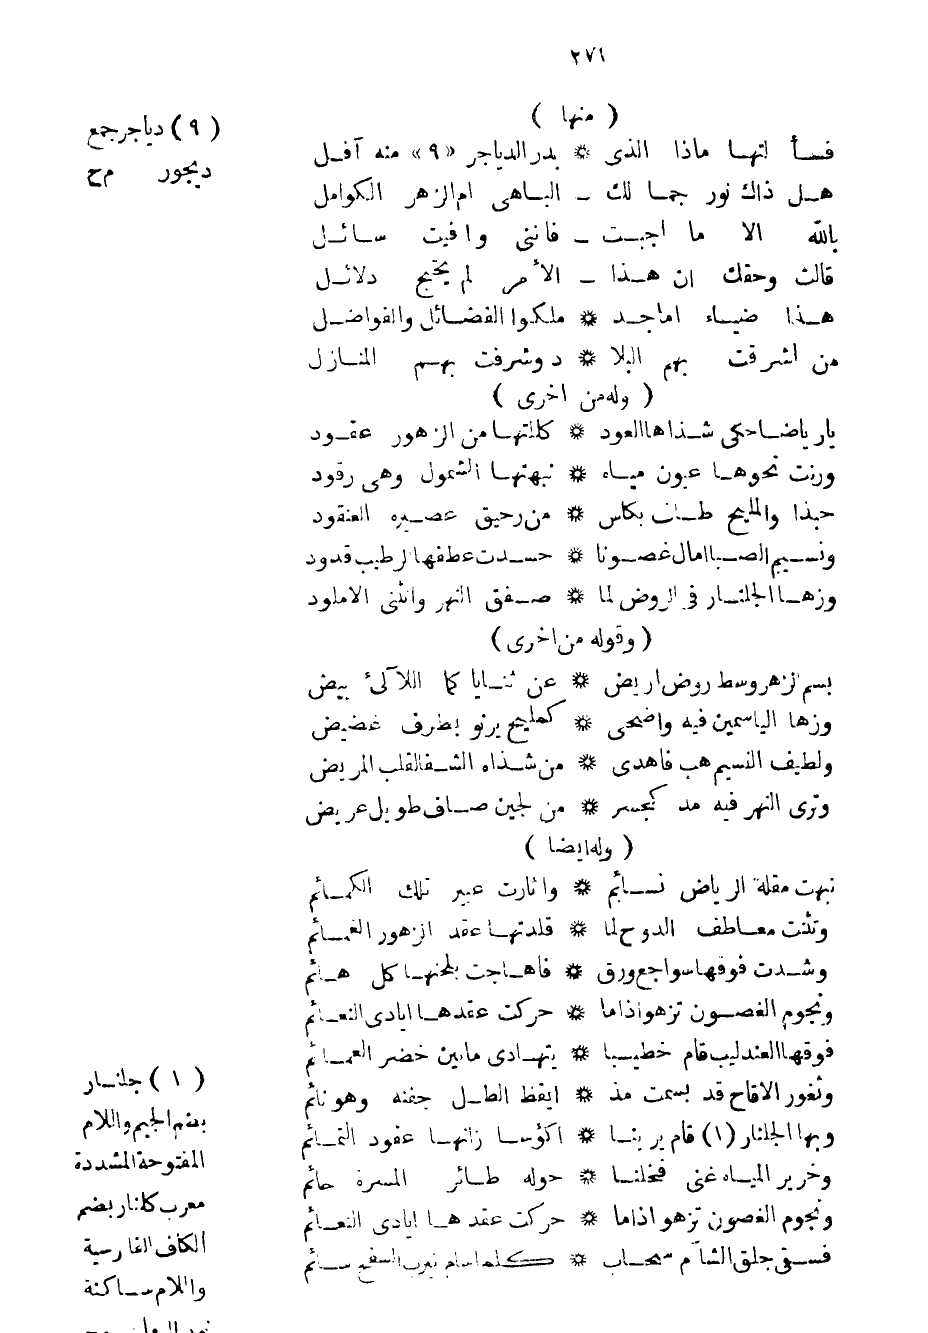 ٢٧١
( منها )
فسألتها ماذا الذى ❊ بدر الدياجر «٩» منه آفل
هل ذاك نور جمالك ـ الباهى ام الزهر الكوامل
بالله الا ما اجبت ـ فاننى وافيت سائل
قالت وحقك ان هذا ـ الأمر لم يحتج دلائل
هذا ضياء اماجد ❊ ملكوا الفضائل والفواضل
من اشرقت بهم البلا ❊ د وشرفت بهم المنازل
( وله من اخرى )
يارياضا حكى شذاها العود ❊ كللتها من الزهور عقود
ورنت نحوها عيون مياه ❊ نبهتها الشمول وهى رقود
حبذا والمليح طاف بكاس ❊ من رحيق عصيره العنقود
ونسيم الصبا امال غصونا ❊ حسدت عطفها الرطيب قدود
وزها الجلنار فى الروض لما ❊ صفق النهر وانثنى الاملود
( وقوله من اخرى )
بسم الزهر وسط روض اريض ❊ عن ثنايا كما اللآلئ بيض
وزها الياسمين فيه واضحى ❊ كمليح يرنو بطرف غضيض
ولطيف النسيم هب فاهدى ❊ من شذاه الشفا لقلب المريض
وترى النهر فيه مد كجسر ❊ من لجين صاف طويل عريض
( وله ايضا )
نبهت مقلة الرياض نسائم ❊ واثارت عبير تلك الكمائم
وتثنت معاطف الدوح لما ❊ قلدتها عقد الزهور الغمائم
وشدت فوقها سواجع ورق ❊ فاهاجت بلحنها كل هائم
ونجوم الغصون تزهو اذا ما ❊ حركت عقدها ايادى النعائم
فوقها العندليب قام خطيبا ❊ يتهادى مابين خضر العمائم
وثغور الاقاح قد بسمت مذ ❊ ايقظ الطل جفنه وهو نائم
وبها الجلنار (١) قام يرينا ❊ اكؤسا زانها عقود التمائم
وخرير المياه غنى فخلنا ❊ حوله طائر المسرة حائم
ونجوم الغصون تزهو اذا ما ❊ حركت عقدها ايادى النعائم
فسقى جلق الشآم سحاب ❊ كلما سام نيرب السفح سائم
( ٩ ) دياجر جمع
ديجور م ح
( ١ ) جلنار
بضم الجيم واللام
المفتوحة المشددة
معرب كلنار بضم
الكاف الفارسية
واللام ساكنة